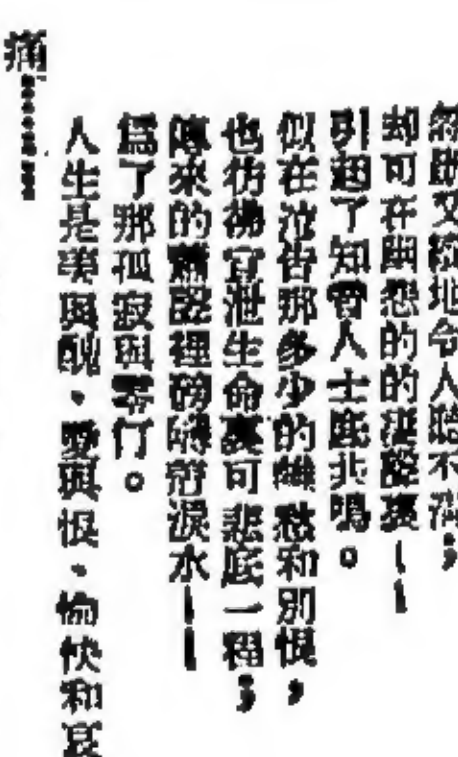 令人
却可在幽怨的的淒聲裏——
引起了知音人士底共鳴。
似在泣告那多少的離愁和別恨，
也彷彿宣泄生命裏可悲底一程；
傳來的聲裡滂淚水——
爲了那孤寂與零仃。
人生是美與醜、愛與恨、愉快和哀
痛………